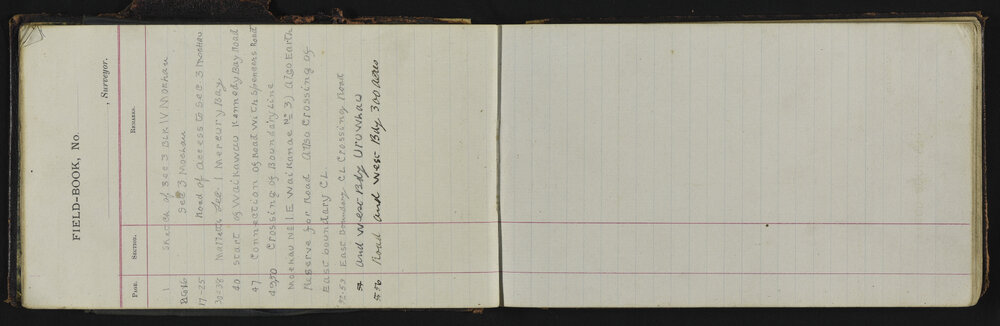 FIELD-BOOK, No.
, Surveyor.
PAGE. SECTION. REMARKS.
1 Sketch of Sec 3 Blk IV Moehau
Sec 3 Moehau
17-25 Road of access to Sec 3 Moehau
30-38 Sec. 1 Mercury Bay
40 Start of Waikawau Kennedy Bay Road
47 Connection of Road with Spencers Road
Crossing of Boundary Line
Moehau No 1E Waikanae No 3) Also Earth
Reserve for Road Also Crossing of
East boundary CL.
52-53 East Boundary CL Crossing Road
and West Bdy Uruwhau
Road and West Bdy 300 acres